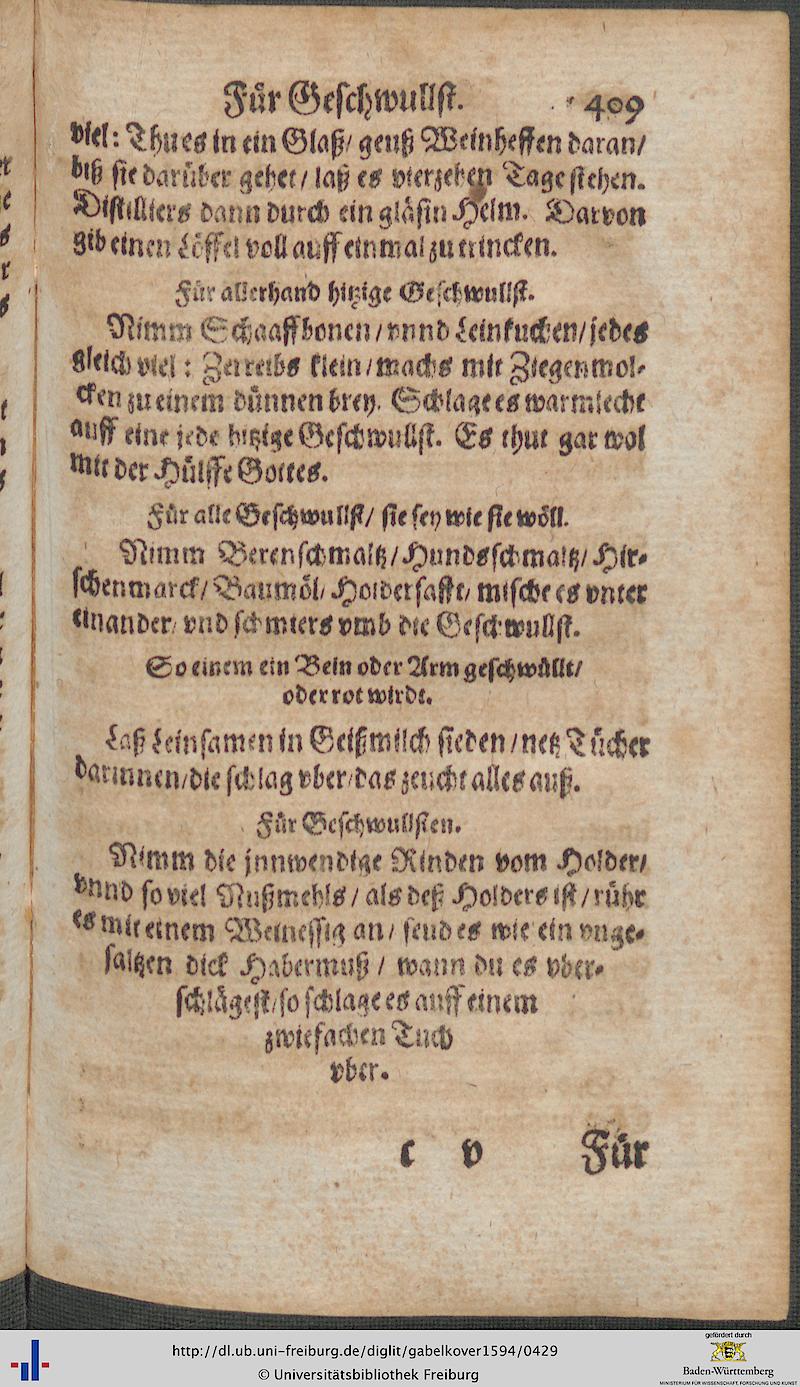 Für Geschwullst. 409
viel: Thu es in ein Glaß/ geuß Weinheffen daran/
biß sie darüber gehet/ laß es vierzehen Tage stehen.
Distilliers dann durch ein gläsin Helm. Darvon
gib einen Löffel voll auff einmal zu trincken.
Für allerhand hitzige Geschwullst.
Nimm Schaaffbonen/ vnnd Leinkuchen/ jedes
gleich viel: Zerreibs klein/ machs mit Ziegenmol-
cken zu einem dünnen brey. Schlage es warmlecht
auff eine jede hitzige Geschwullst. Es thut gar wol
mit der Hülffe Gottes.
Für alle Geschwullst/ sie sey wie sie wöll.
Nimm Berenschmaltz/ Hundsschmaltz/ Hir-
schenmarck/ Baumöl/ Holdersafft/ mische es vnter
einander/ vnd schmiers vmb die Geschwullst.
So einem ein Bein oder Arm geschwüllt/
oder rot wirdt.
Laß Leinsamen in Geißmilch sieden/ netz Tücher
darinnen/ die schlag vber/ das zeucht alles auß.
Für Geschwullsten.
Nimm die jnnwendige Rinden vom Holder/
vnnd so viel Nußmehls/ als deß Holders ist/ rühr
es mit einem Weinessig an/ seud es wie ein vnge-
saltzen dick Habermuß/ wann du es vber-
schlägest/ so schlage es auff einem
zwiefachen Tuch
vber.
c v Für
http://dl.ub.uni-freiburg.de/diglit/gabelkover1594/0429
© Universitätsbibliothek Freiburg
gefördert durch
Baden-Württemberg
MINISTERIUM FÜR WISSENSCHAFT, FORSCHUNG UND KUNST